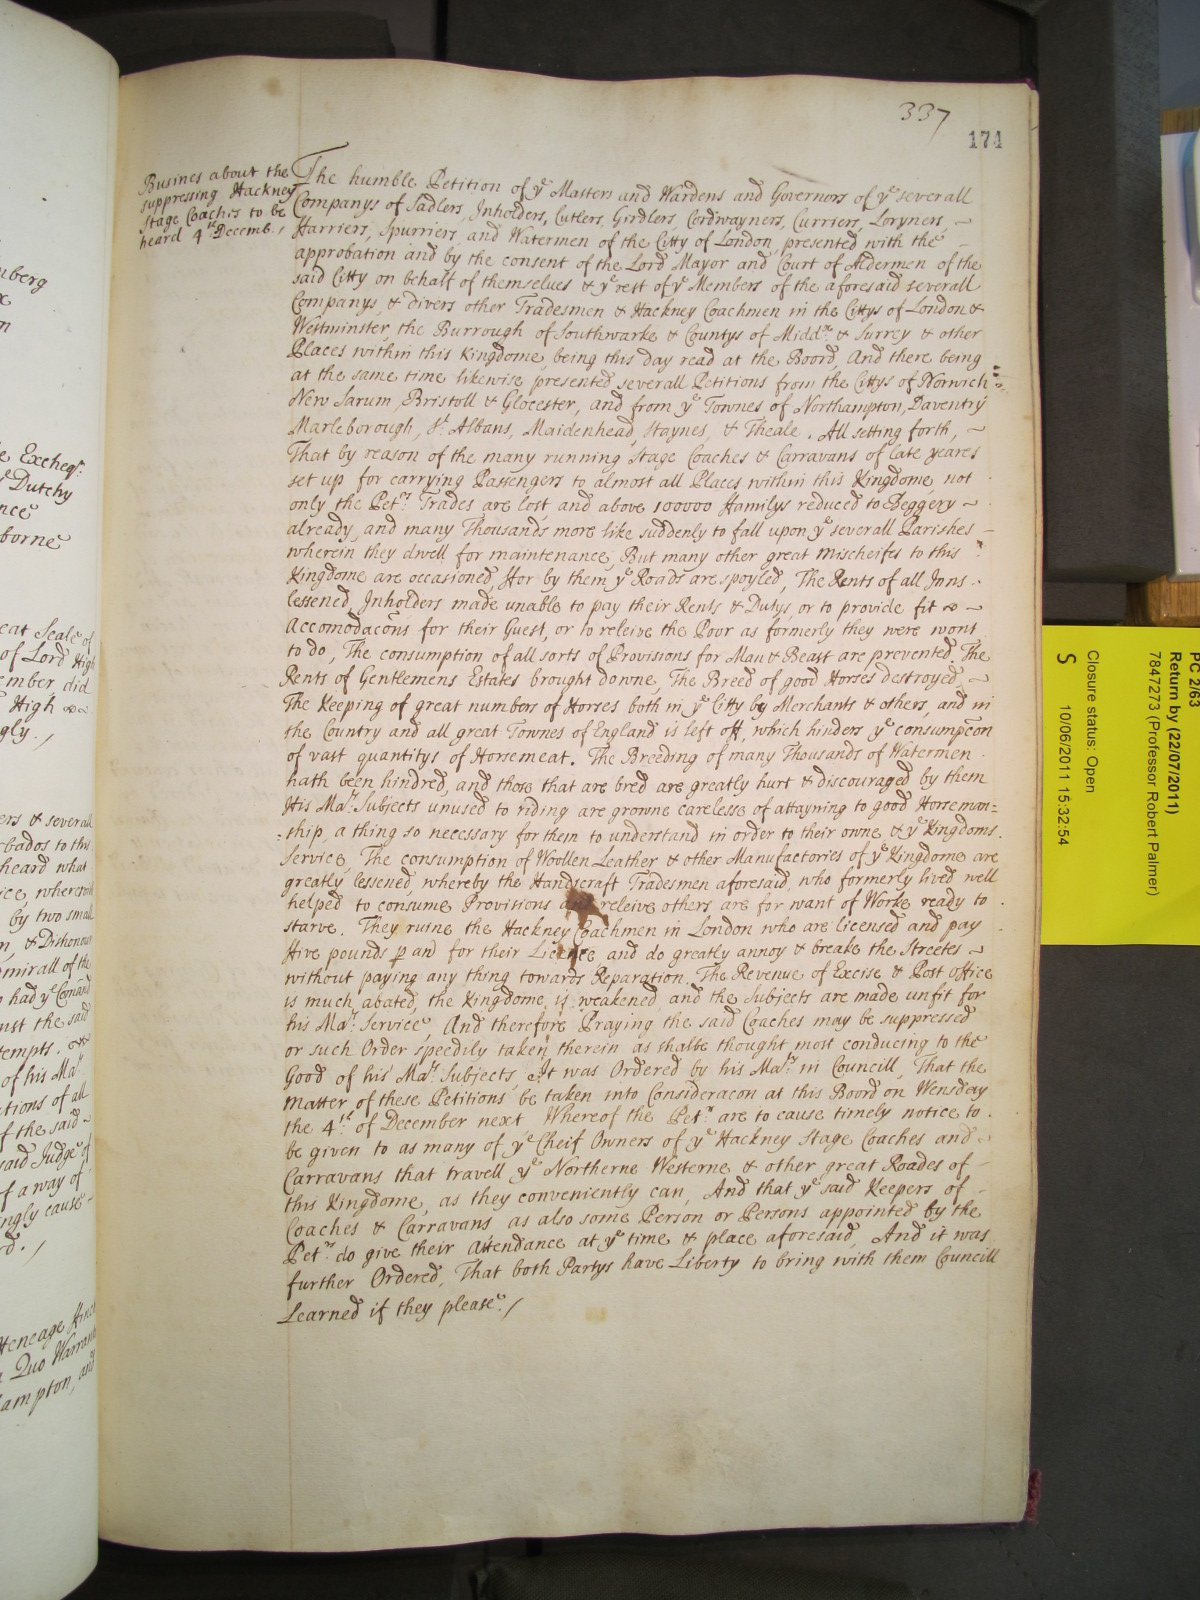 337
174
Busines about the
suppressing Hackney
Stage Coaches to be
heard 4th Decemb.,
The humble Petition of ye Masters and Wardens and Governors of ye severall
Companys of Sadlers, Inholders, Cutlers, Girdlers, Cordwayners, Curriers, Loryners,
Farriers, Spurriers, and Watermen of the Citty of London, presented with the
approbation and by the consent of the Lord Mayor and Court of Aldermen of the
said Citty on behalf of themselves & ye rest of ye Members of the aforesaid severall
Companys, & divers other Tradesmen & Hackney Coachmen in the Cittys of London &
Westminster, the Burrough of Southwarke & Countys of Middx & Surrey & other
Places within this Kingdome, being this day read at the Boord, And there being
at the same time likewise presented severall Petitions from the Cittys of Norwich
New Sarum, Bristoll & Glocester, and from ye Townes of Northampton, Daventry
Marleborough, St. Albans, Maidenhead, Staynes, & Theale. All setting forth,
That by reason of the many running Stage Coaches & Carravans of late yeares
set up for carrying Passengers to almost all Places within this Kingdome, not
only the Petrs Trades are lost and above 100000 Familys reduced to Beggery
already, and many Thousands more like suddenly to fall upon ye severall Parishes
wherein they dwell for maintenance, But many other great mischeifes to this
Kingdome are occasioned, For by them ye Roads are spoyled, The Rents of all Inns
lessened, Inholders made unable to pay their Rents & Dutys, or to provide fit
Accomodacons for their Guest, or to releive the Poor as formerly they were wont
to do, The consumption of all sorts of Provisions for Man & Beast are prevented, The
Rents of Gentlemens Estates brought downe, The Breed of good Horses destroyed,
The Keeping of great numbers of Horses both in ye Citty by Merchants & others, and in
the Country and all great Townes of England is left off, which hinders ye consumpcon
of vast quantitys of Horsemeat. The Breeding of many Thousands of Watermen
hath been hindred, and those that are bred are greatly hurt & discouraged by them
His Mats Subjects unused to riding are growne carelesse of attayning to good Horseman=
ship, a thing so necessary for them to understand in order to their owne & ye Kingdoms
Service, The consumption of Woollen Leather & other Manufactories of ye Kingdome are
greatly lessened, whereby the Handicraft Tradesmen aforesaid, who formerly lived well
helped to consume Provisions and releive others are for want of Worke ready to
starve. They ruine the Hackney Coachmen in London who are licensed and pay
Five pounds p an for their Licence and do greatly annoy & breake the Streetes
without paying any thing towards Reparation, The Revenue of Excise & Post Office
is much abated, the Kingdome is weakened, and the Subjects are made unfit for
his Mats Service, And therefore Praying the said Coaches may be suppressed
or such Order speedily taken therein as shalbe thought most conducing to the
Good of his Mats Subjects, It was Ordered by his Maty in Councill, That the
Matter of these Petitions be taken into Consideracon at this Boord on Wensday
the 4th of December next, Whereof the Petrs are to cause timely notice to
be given to as many of ye Cheif Owners of ye Hackney Stage Coaches and
Carravans that travell ye Northerne Westerne & other great Roades of
this Kingdome, as they conveniently can, And that ye said Keepers of
Coaches & Carravans as also some Person or Persons appointed by the
Petrs do give their attendance at ye time & place aforesaid, And it was
further Ordered, That both Partys have Liberty to bring with them Councill
Learned if they please./
PC 2/63
Return by (22/07/2011)
7847273 (Professor Robert Palmer)
Closure status: Open
S 10/06/2011 15:32:54